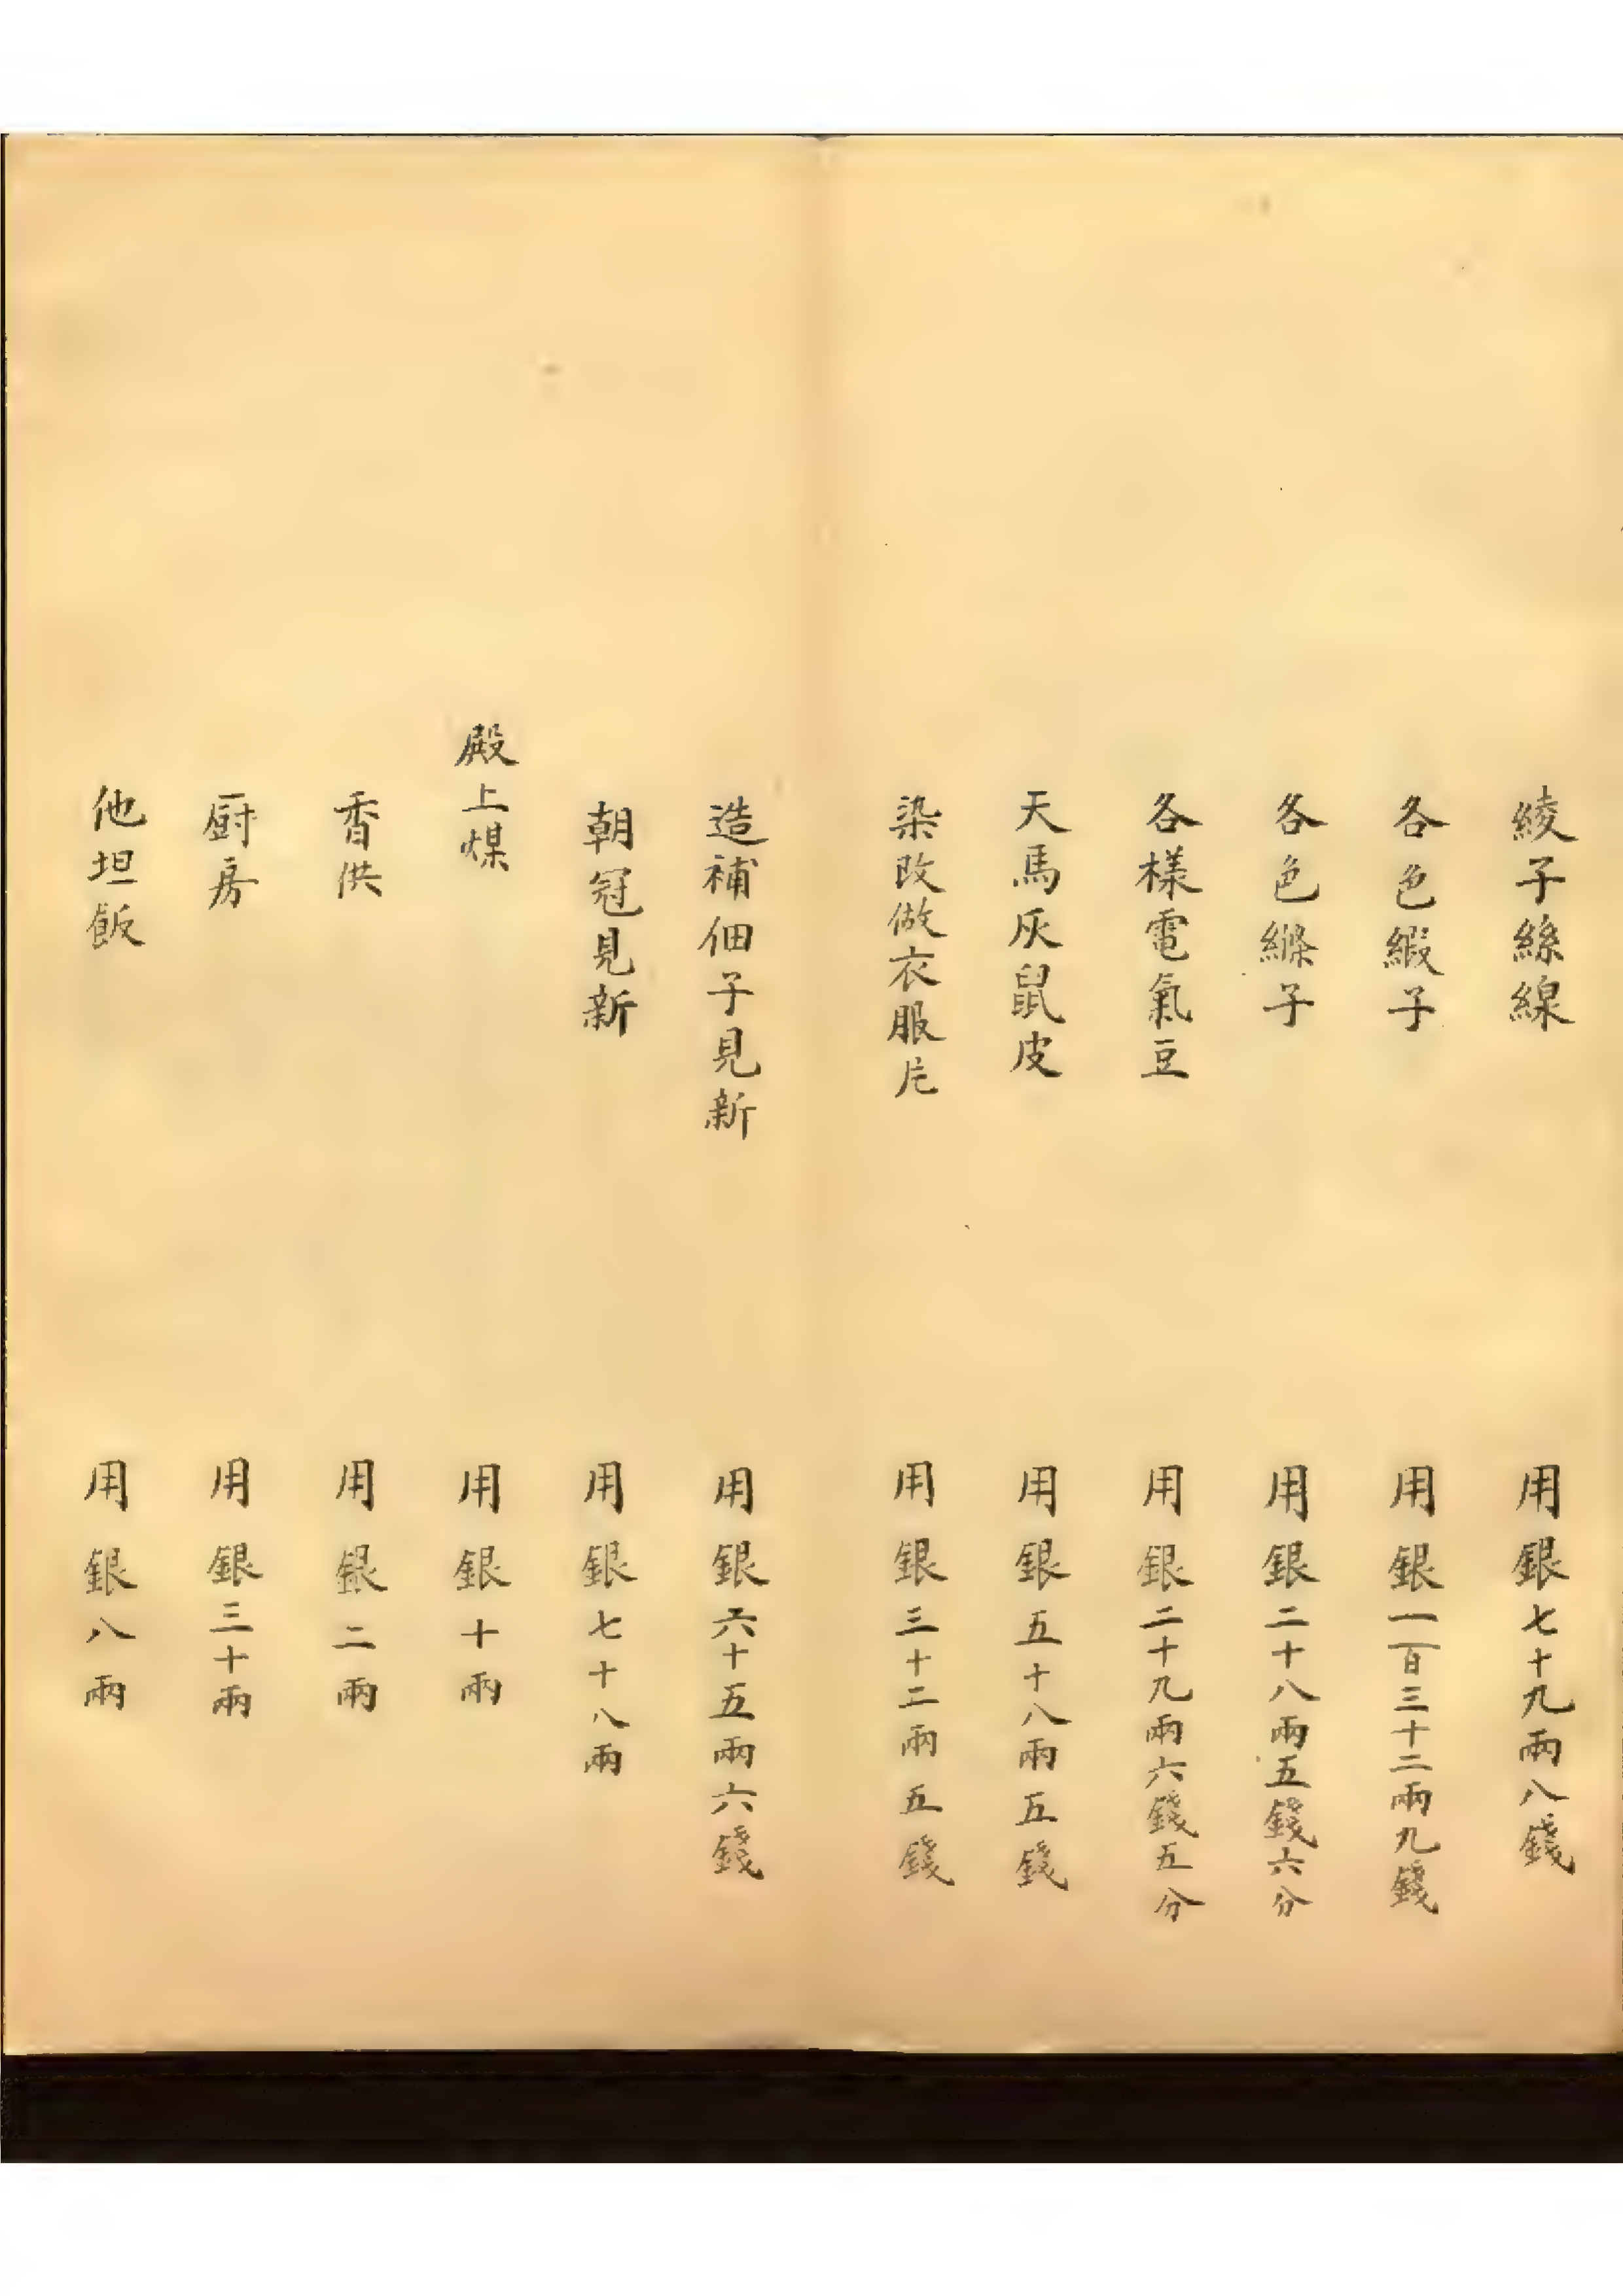 綾子絲線 用銀七十九兩八錢
各色緞子 用銀一百三十二兩九錢
各色縧子 用銀二十八兩五錢六分
各樣電氣豆 用銀二十九兩六錢五分
天馬灰鼠皮 用銀五十八兩五錢
染改做衣服片 用銀三十二兩五錢
造補佃子見新 用銀六十五兩六錢
朝冠見新 用銀七十八兩
殿上煤 用銀十兩
香供 用銀二兩
厨房 用銀三十兩
他坦飯 用銀八兩